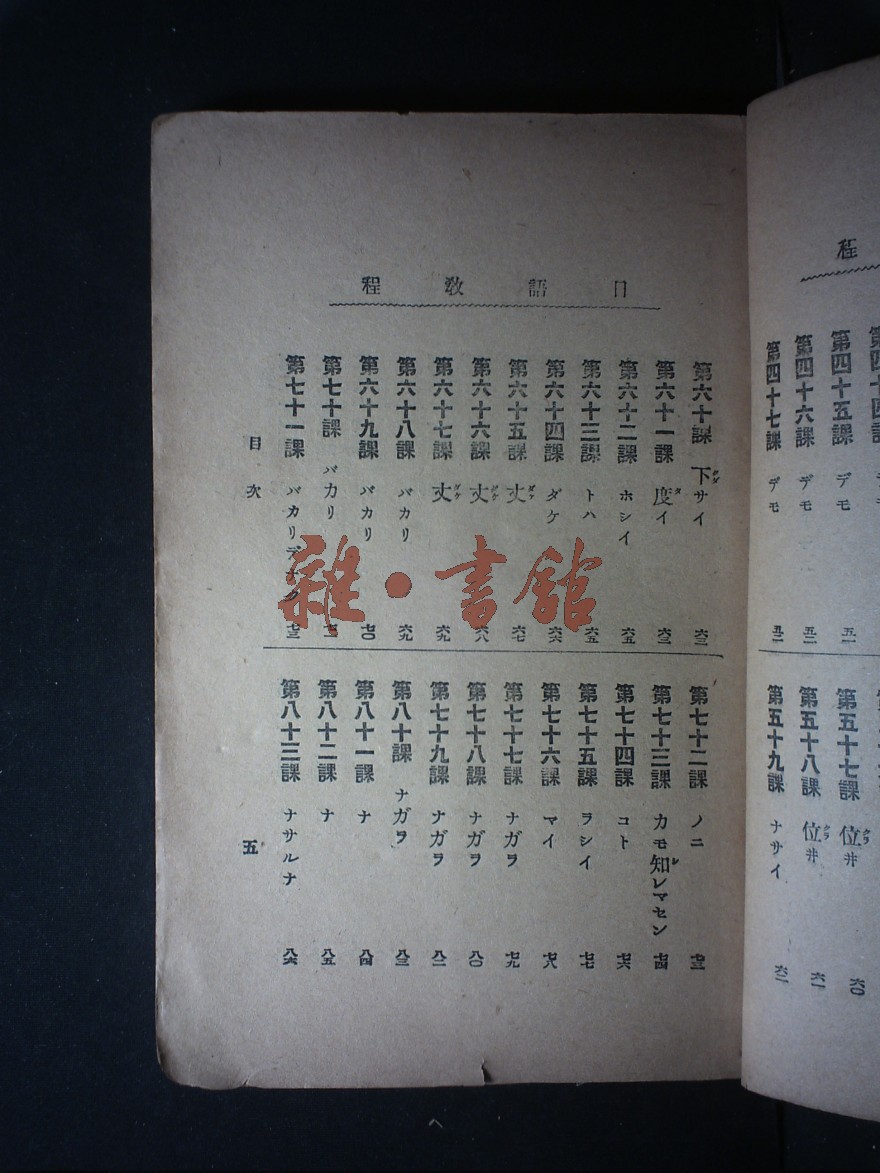 日語教程
第六十課 下サイ 六三
第六十一課 度イ 六三
第六十二課 ホシイ 六五
第六十三課 トハ 六五
第六十四課 ダケ 六六
第六十五課 丈 六七
第六十六課 丈 六八
第六十七課 丈 六九
第六十八課 バカリ 六九
第六十九課 バカリ 七〇
第七十課 バカリ
第七十一課 バカリデナク
第七十二課 ノニ 七三
第七十三課 カモ知レマセン 七四
第七十四課 コト 七六
第七十五課 ラシイ 七七
第七十六課 マイ 七八
第七十七課 ナガラ 七九
第七十八課 ナガラ 八〇
第七十九課 ナガラ
第八十課 ナガラ 八三
第八十一課 ナ 八四
第八十二課 ナ 八五
第八十三課 ナサルナ 八六
目次
五
雜·書舘
程
第四十五課 デモ 五一
第四十六課 デモ 五二
第四十七課 デモ
第五十七課 位ヰ 六〇
第五十八課 位ヰ 六一
第五十九課 ナサイ 六二